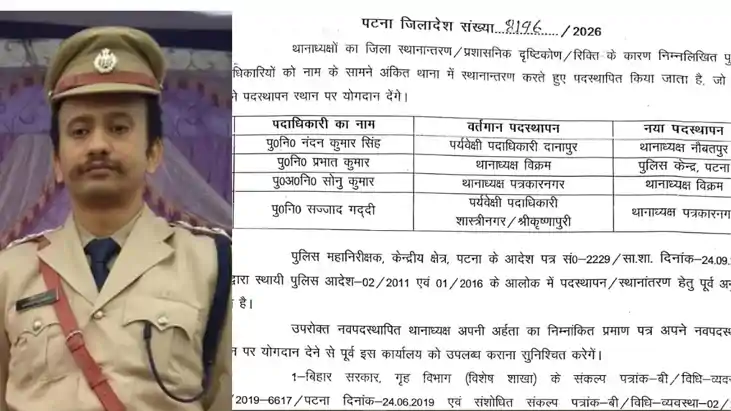 पटना जिलादेश संख्या 2196 /2026
थानाध्यक्षों का जिला स्थानान्तरण/प्रशासनिक दृष्टिकोण/रिक्ति के कारण निम्नलिखित पु
धिकारियों को नाम के सामने अंकित थाना में स्थानान्तरण करते हुए पदस्थापित किया जाता है, जो
पदस्थापन स्थान पर योगदान देंगे।
पदाधिकारी का नाम वर्तगान पदस्थापन नया पदस्थापन
पु0नि0 नंदन कुमार सिंह पर्यवेक्षी पदाधिकारी दानापुर थानाध्यक्ष नौबतपुर
पु0नि0 प्रभात कुमार थानाध्यक्ष विक्रम पुलिस केन्द्र, पटना
पु0अ0नि0 सोनु कुमार थानाध्यक्ष पत्रकारनगर थानाध्यक्ष विक्रम
पु0नि0 सज्जाद गद्दी पर्यवेक्षी पदाधिकारी शास्त्रीनगर/श्रीकृष्णापुरी थानाध्यक्ष पत्रकारनग
पुलिस महानिरीक्षक, केन्द्रीय क्षेत्र, पटना के आदेश पत्र सं0-2229/सा.शा. दिनांक-24.09.
द्वारा स्थायी पुलिस आदेश-02/2011 एवं 01/2016 के आलोक में पदस्थापन/स्थानांतरण हेतु पूर्व अनु
है।
उपरोक्त नवपदस्थापित थानाध्यक्ष अपनी अर्हता का निम्नांकित प्रमाण पत्र अपने नवपदस्
न पर योगदान देने से पूर्व इस कार्यालय को उपलब्ध कराना सुनिश्चित करेगें।
1-बिहार सरकार, गृह विभाग (विशेष शाखा) के संकल्प पत्रांक-बी/विधि-व्यव
/2019-6617/पटना दिनांक-24.06.2019 एवं संशोधित संकल्प पत्रांक-बी/विधि-व्यवस्था-02/